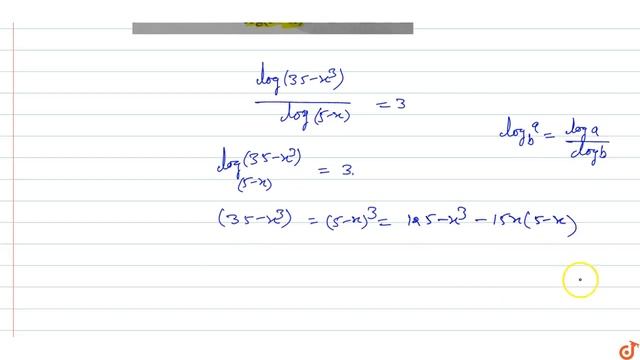 log(35-x³) / log(5-x) = 3
log_b a = log a / log b
log_(5-x) (35-x³) = 3.
(35-x³) = (5-x)³ = 125-x³ - 15x(5-x)